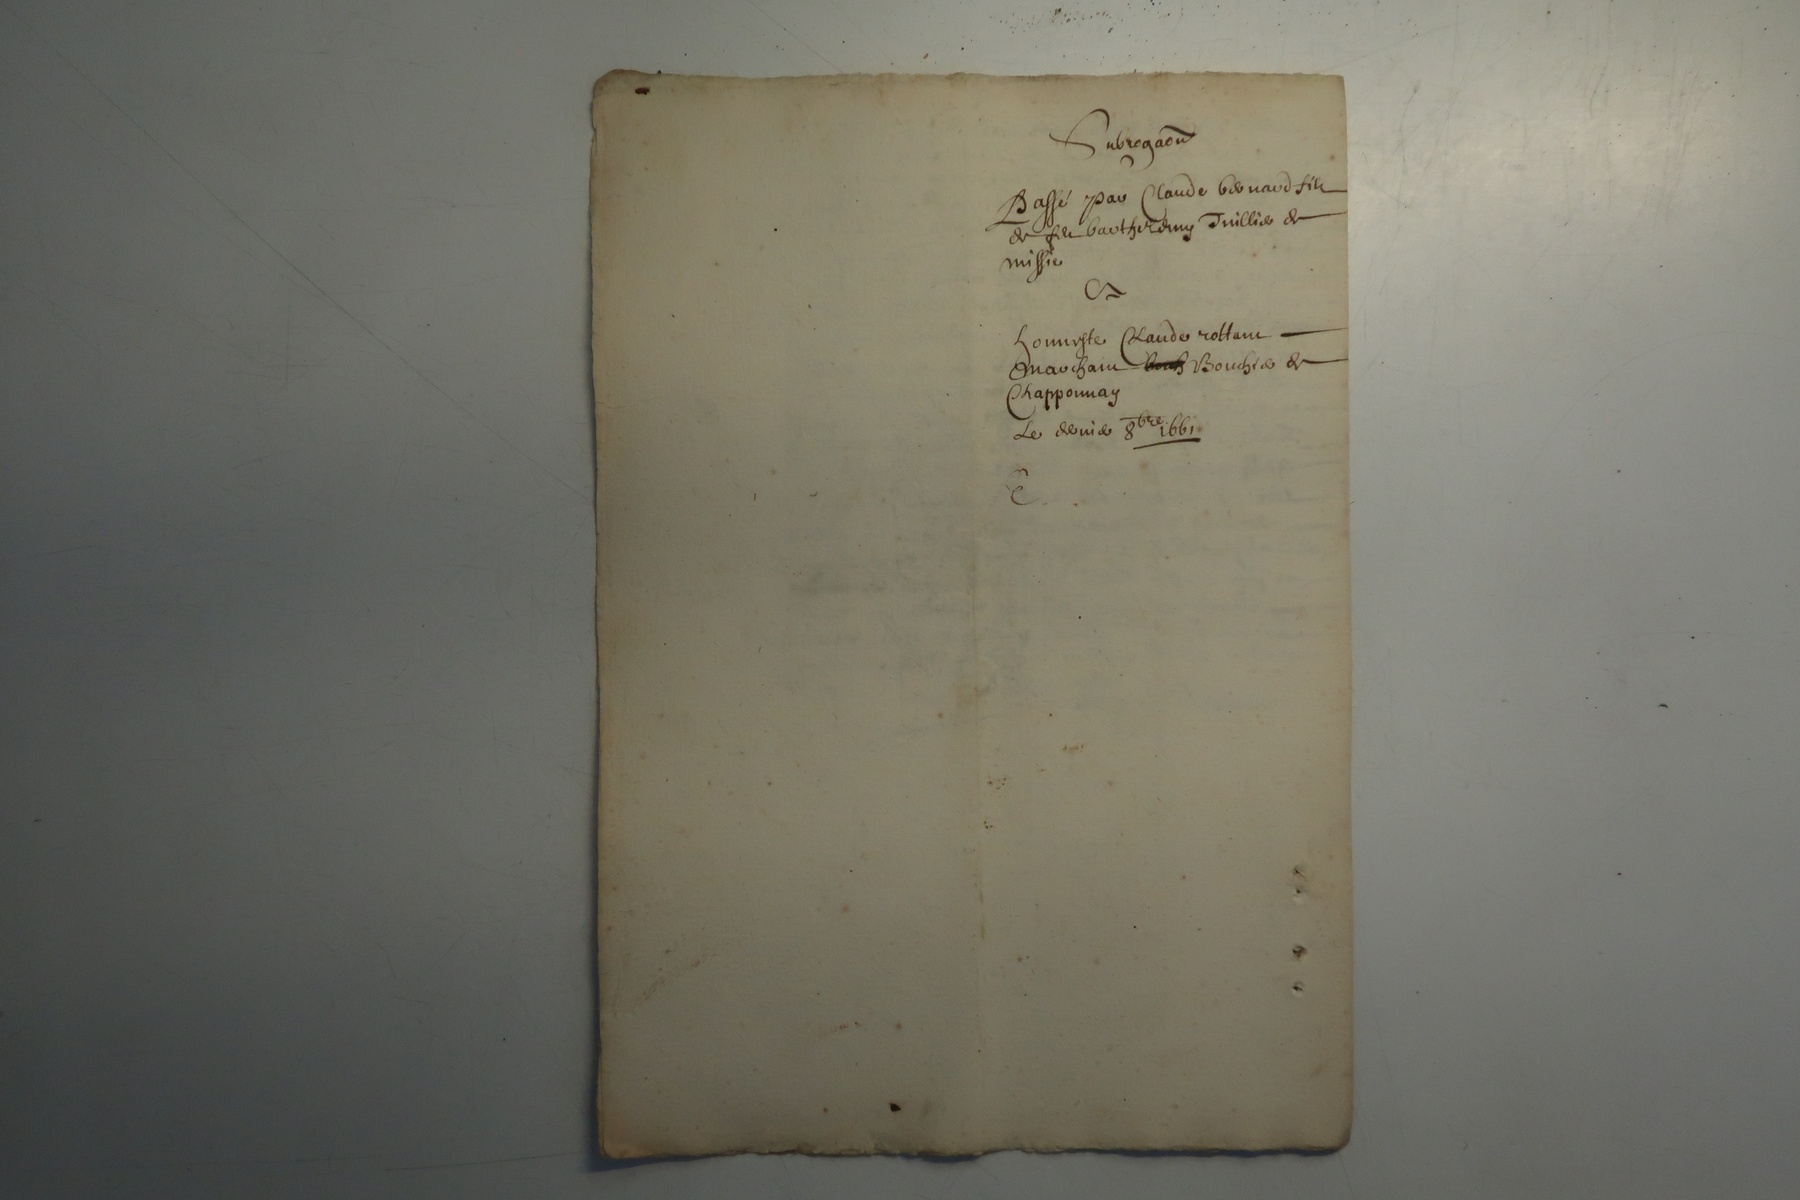 Subrogaon
Passé par Claude bernard filz
de feu barthelemy Tuillier de
missie
Et
honneste Claude rottain
marchain bouch Bouchier de
Chapponnay
Le dernier 8bre 1661